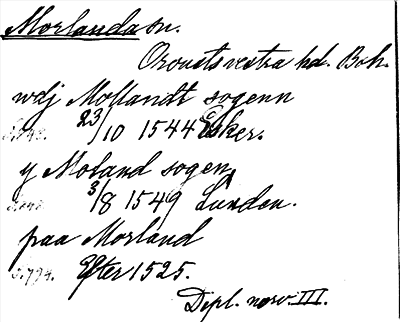 Morlanda sn.
Orousts vestra hd. Boh.
wdj Mollandt sogenn
23/10 1544 Esker.
y Moland sogen,
3/8 1549 Lunden.
paa Morland
s. 794. Efter 1525.
Dipl. norv. III.